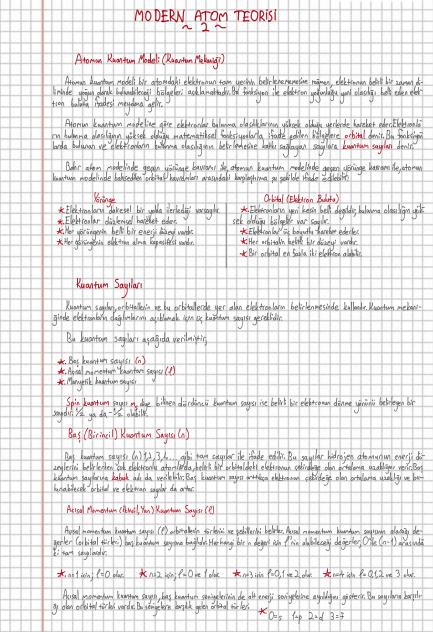 MODERN ATOM TEORİSİ
~ 2 ~
Atomun Kuantum Modeli (Kuantum Mekaniği)
Atomun kuantum modeli bir atomdaki elektronun tam yerinin belirlenememesine rağmen, elektronun belirli bir zaman di-
liminde yoğun olarak bulunabileceği bölgeleri açıklamaktadır. Bu fonksiyon ile elektron yoğunluğu yani olasılığı belli eden elek-
tron bulutu ifadesi meydana gelir.
Atomun kuantum modeline göre elektronlar bulunma olasılıklarının yüksek olduğu yerlerde hareket eder. Elektronla-
rın bulunma olasılığının yüksek olduğu matematiksel fonksiyonlarla ifade edilen bölgelere orbital denir. Bu fonksiyon-
larda bulunan ve elektronların bulunma olasılığının belirlenmesine katkı sağlayan sayılara kuantum sayıları denir.
Bohr atom modelinde geçen yörünge kavramı ile, atomun kuantum modelinde geçen yörünge kavramı ile, atomun
kuantum modelinde bahsedilen orbital kavramları arasındaki karşılaştırma şu şekilde ifade edilebilir:
Yörünge
★ Elektronların dairesel bir yolda ilerlediği varsayılır.
★ Elektronlar düzlemsel hareket eder.
★ Her yörüngenin belli bir enerji düzeyi vardır.
★ Her yörüngenin elektron alma kapasitesi vardır.
Orbital (Elektron Bulutu)
★ Elektronların yeri kesin belli değildir, bulunma olasılığın yük-
sek olduğu bölgeler var sayılır.
★ Elektronlar üç boyutlu hareket ederler.
★ Her orbitalin belirli bir düzeyi vardır.
★ Bir orbital en fazla iki elektron alabilir.
Kuantum Sayıları
Kuantum sayıları, orbitallerin ve bu orbitallerde yer alan elektronların belirlenmesinde kullanılır. Kuantum mekani-
ğinde elektronların dağılımlarını açıklamak için üç kuantum sayısı gereklidir.
Bu kuantum sayıları aşağıda verilmiştir;
★ Baş kuantum sayısı (n)
★ Açısal momentum kuantum sayısı (ℓ)
★ Manyetik kuantum sayısı
Spin kuantum sayısı mₛ diye bilinen dördüncü kuantum sayısı ise belirli bir elektronun dönme yönünü belirleyen bir
sayıdır. 1/2 ya da -1/2 olabilir.
Baş (Birincil) Kuantum Sayısı (n)
Baş kuantum sayısı (n) 1,2,3,4... gibi tam sayılar ile ifade edilir. Bu sayılar hidrojen atomunun enerji dü-
zeylerini belirlerken çok elektronlu atomlarda, belirli bir orbitaldeki elektronun çekirdeğe olan ortalama uzaklığını verir. Baş
kuantum sayılarına kabuk adı da verilebilir. Baş kuantum sayısı arttıkça elektronun çekirdeğe olan ortalama uzaklığı ve bu-
lunabilecek orbital ve elektron sayılar da artar.
Açısal Momentum (İkincil, Yan) Kuantum Sayısı (ℓ)
Açısal momentum kuantum sayısı (ℓ) orbitallerin türlerini ve şekillerini belirler. Açısal momentum kuantum sayısının alacağı de-
ğerler (orbital türleri) baş kuantum sayısına bağlıdır. Herhangi bir n değeri için ℓ'nin alabileceği değerler, 0 ile (n-1) arasında
ki tam sayılardır.
★ n=1 için; ℓ=0 olur. ★ n=2 için; ℓ=0 ve 1 olur. ★ n=3 için ℓ=0,1 ve 2 olur. ★ n=4 için ℓ=0,1,2 ve 3 olur.
Açısal momentum sayısı, baş kuantum seviyelerinin de alt enerji seviyelerine ayrıldığını gösterir. Bu sayılara karşılı-
ğı olan orbital türleri vardır. Bu seviyelere karşılık gelen orbital türleri:
★ 0=s 1=p 2=d 3=f